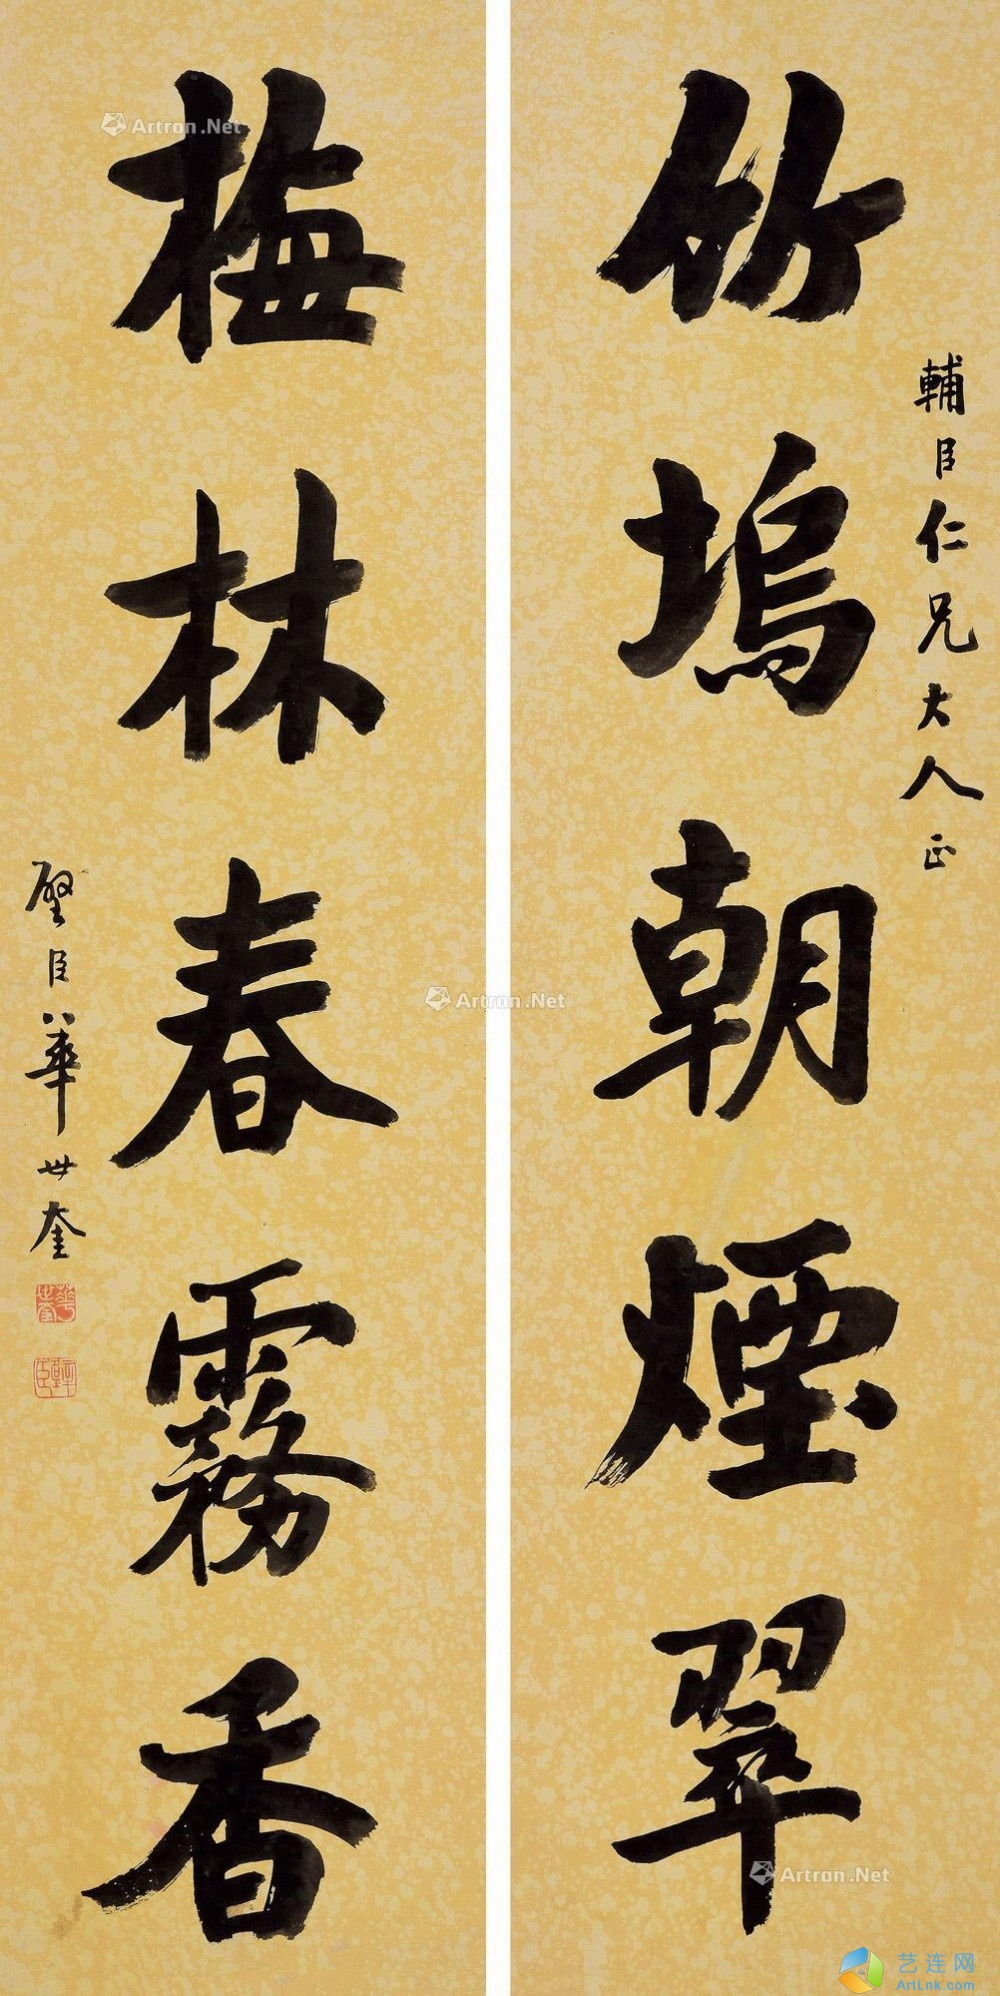 輔臣仁兄大人正
竹塢朝煙翠
梅林春霧香
璧臣華世奎
Artron.Net
Artron.Net
Artron.Net
艺连网
ArtLnk.com